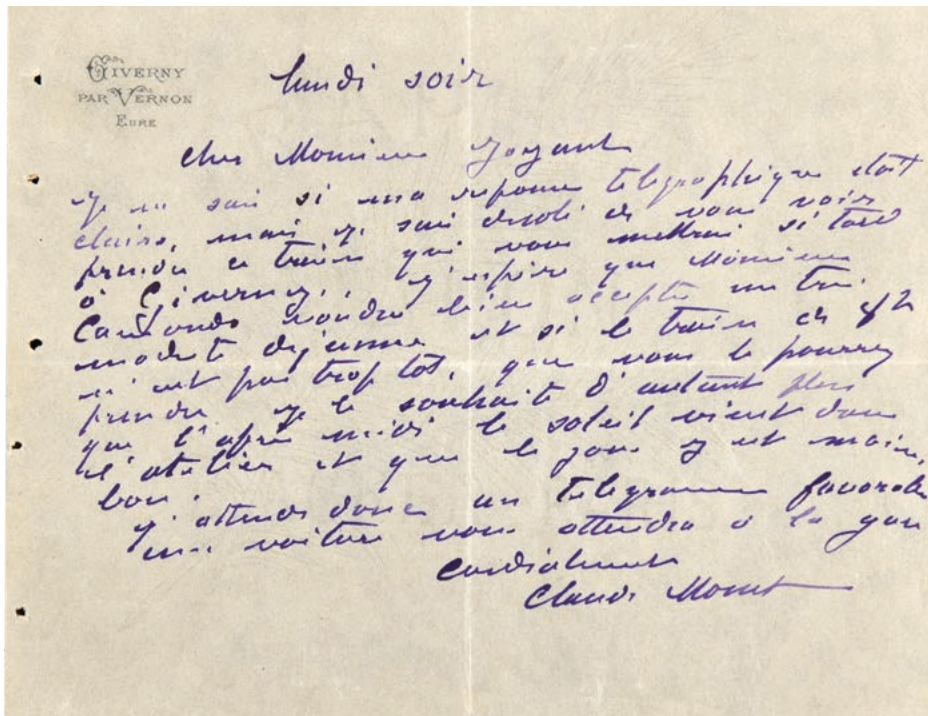 GIVERNY
PAR VERNON
EURE
lundi soir
cher Monsieur Joyant
Je ne sais si ma reponse telegraphique etait
claire, mais je suis desolé de vous voir
prendre ce train qui vous mettrai si tard
à Giverny. J'espère que Monsieur
Camondo voudra bien accepter un très
modeste dejeuner et si le train de 8h
n'est pas trop tot, que vous le pourrez
prendre je le souhaite d'autant plus
que l'après midi le soleil vient dans
l'atelier et que le jour y est moins
bon.
J'attends donc un telegramme favorable
une voiture vous attendra à la gare
cordialement
Claude Monet